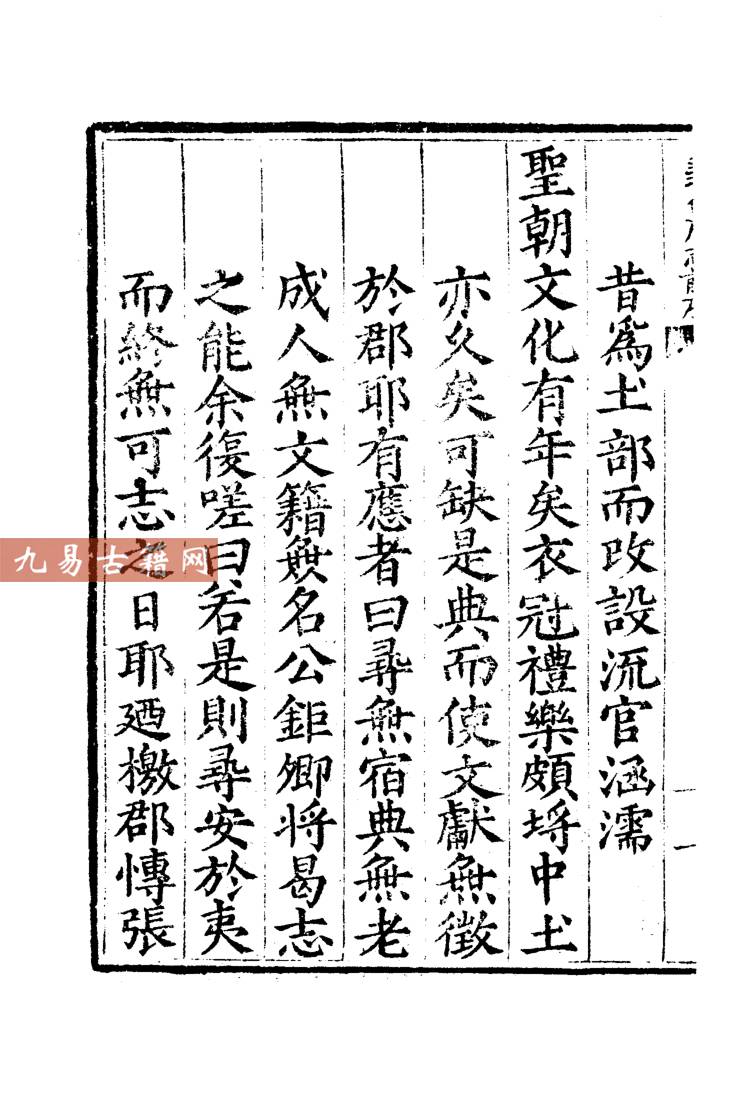 昔爲土部而改設流官涵濡
聖朝文化有年矣衣冠禮樂頗埒中土
亦久矣可缺是典而使文獻無徵
於郡耶有應者曰尋無宿典無老
成人無文籍無名公鉅卿將曷志
之能余復嗟曰若是則尋安於夷
而終無可志之日耶廼檄郡博張
九易古籍网